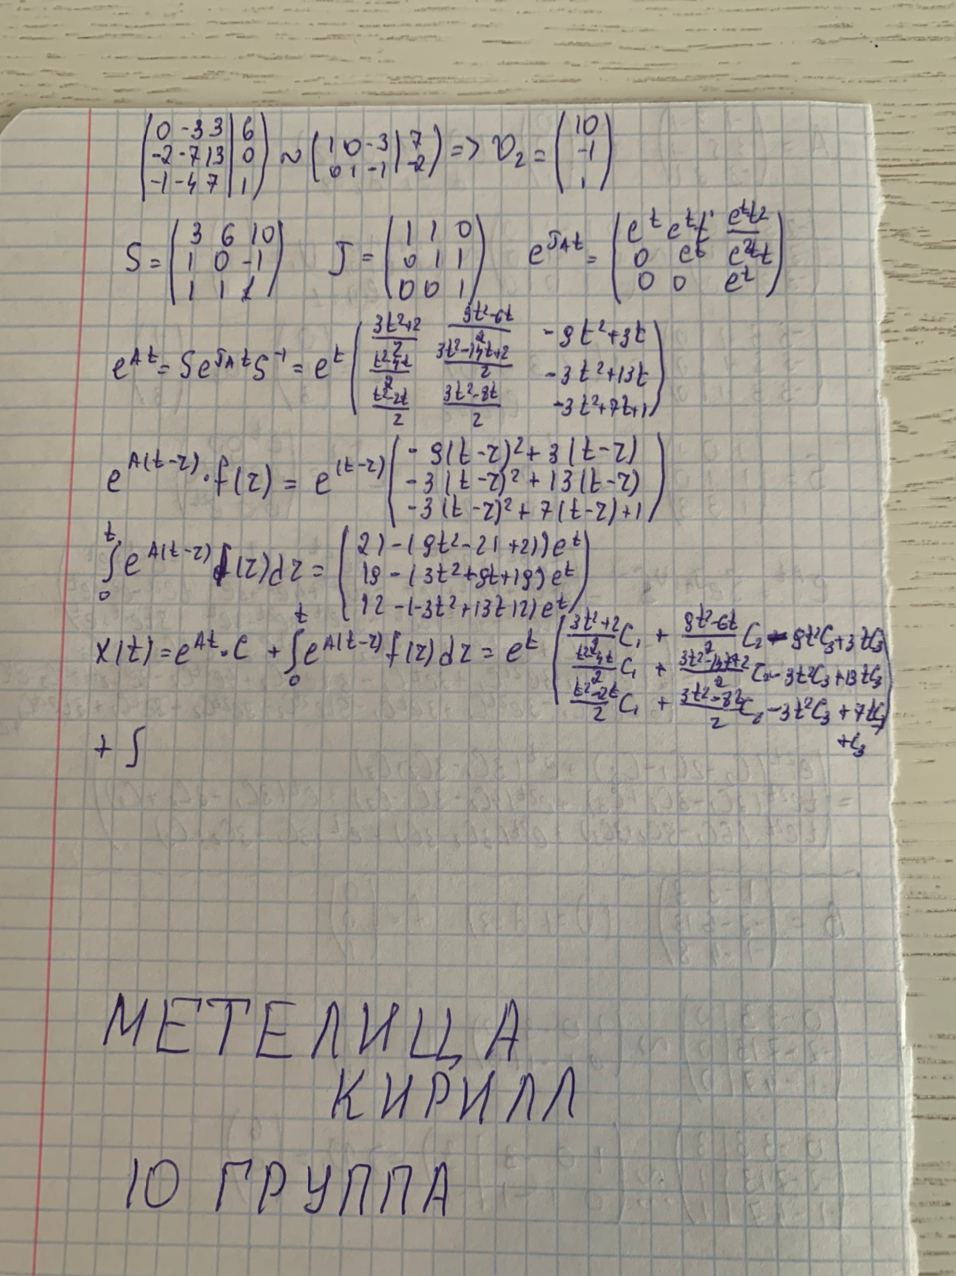 (0 -3 3 | 6; -2 -7 13 | 0; -1 -4 7 | 1) ~ (1 0 -3 | 7; 0 1 -1 | -2) => v₂ = (10; -1; 1)
S = (3 6 10; 1 0 -1; 1 1 1) J = (1 1 0; 0 1 1; 0 0 1) e^{J_A t} = (e^t e^t t e^t t²/2; 0 e^t e^t t; 0 0 e^t)
e^{At} = S e^{J_A t} S^{-1} = e^t ((3t²+2)/2 (9t²-6t)/2 -9t²+3t; (t²-4t)/2 (3t²-14t+2)/2 -3t²+13t; (t²-2t)/2 (3t²-8t)/2 -3t²+7t+1)
e^{A(t-τ)}·f(τ) = e^{(t-τ)} (-9(t-τ)²+3(t-τ); -3(t-τ)²+13(t-τ); -3(t-τ)²+7(t-τ)+1)
∫₀^t e^{A(t-τ)} f(τ)dτ = (21-(9t²-21+21)e^t; 19-(3t²+9t+19)e^t; 12-(-3t²+13t 12)e^t)
x(t) = e^{At}·C + ∫₀^t e^{A(t-τ)} f(τ)dτ = e^t ((3t²+2)/2 C₁ + (9t²-6t)/2 C₂ - 9t²C₃+3tC₃; (t²-4t)/2 C₁ + (3t²-14t+2)/2 C₂ - 3t²C₃+13tC₃; (t²-2t)/2 C₁ + (3t²-8t)/2 C₂ - 3t²C₃+7tC₃+C₃)
+ ∫
МЕТЕЛИЦА
КИРИЛЛ
10 ГРУППА